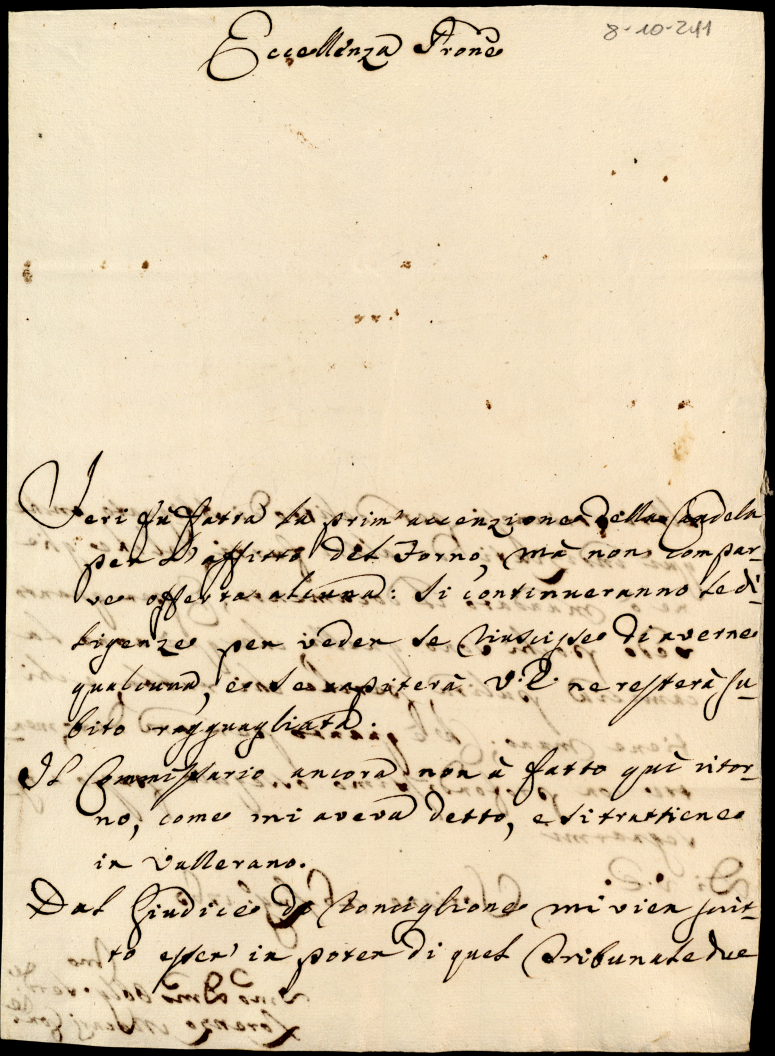 8-10-241
Eccellenza Prone
Jeri fù fatta la prim' accenzione della Candela
per l'affitto del Forno, mà non compar-
ve offerta alcuna: si continueranno le di-
ligenze per veder se riuscisse di averne
qualcuna, e se capiterà V.E. ne resterà su-
bito ragguagliata.
Il Commissario ancora non à fatto quì ritor-
no, come mi aveva detto, e si trattiene
in Vallerano.
Dal Giudice di Ronciglione mi vien scrit-
to esser' in poter di quel Tribunale due